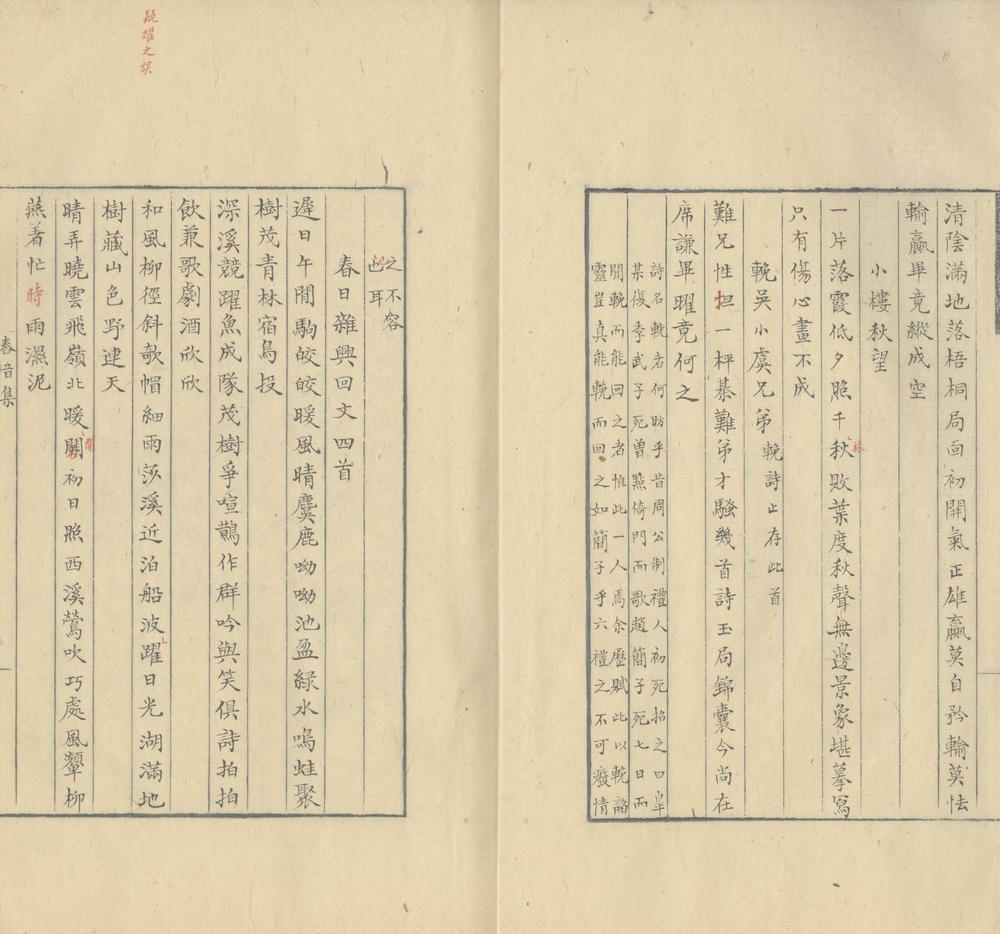 清陰滿地落梧桐局面初開氣正雄贏莫自矜輸莫怯
輸贏畢竟縱成空
小樓秋望
一片落霞低夕照千秋敗葉度秋聲無邊景象堪摹寫
林
只有傷心畫不成
輓吳小虞兄弟輓詩止存此首
難兄性坦一枰棊難弟才騷幾首詩玉局錦囊今尚在
席謙畢曜竟何之
詩名輓者何昉乎昔周公制禮人初死招之曰臯
某復季武子死曾點倚門而歌趙簡子死七日而
聞輓而能回之者惟此一人焉余歷賦此以輓諸
靈豈真能輓而回之如簡子乎六禮之不可癈情
之不容
也耳
春日雜興回文四首
遲日午閒駒皎皎暖風晴麌鹿呦呦池盈綠水鳴蛙聚
樹茂青林宿鳥投
深溪競躍魚成隊茂樹爭喧鵲作群吟與笑俱詩拍拍
飲兼歌劇酒欣欣
和風柳徑斜欹帽細雨莎溪近泊船波躍日光湖滿地
疑耀之誤
樹藏山色野連天
晴弄曉雲飛嶺北暖初日照西溪鶯吹巧處風顰柳
燕著忙時雨濕泥
春音集